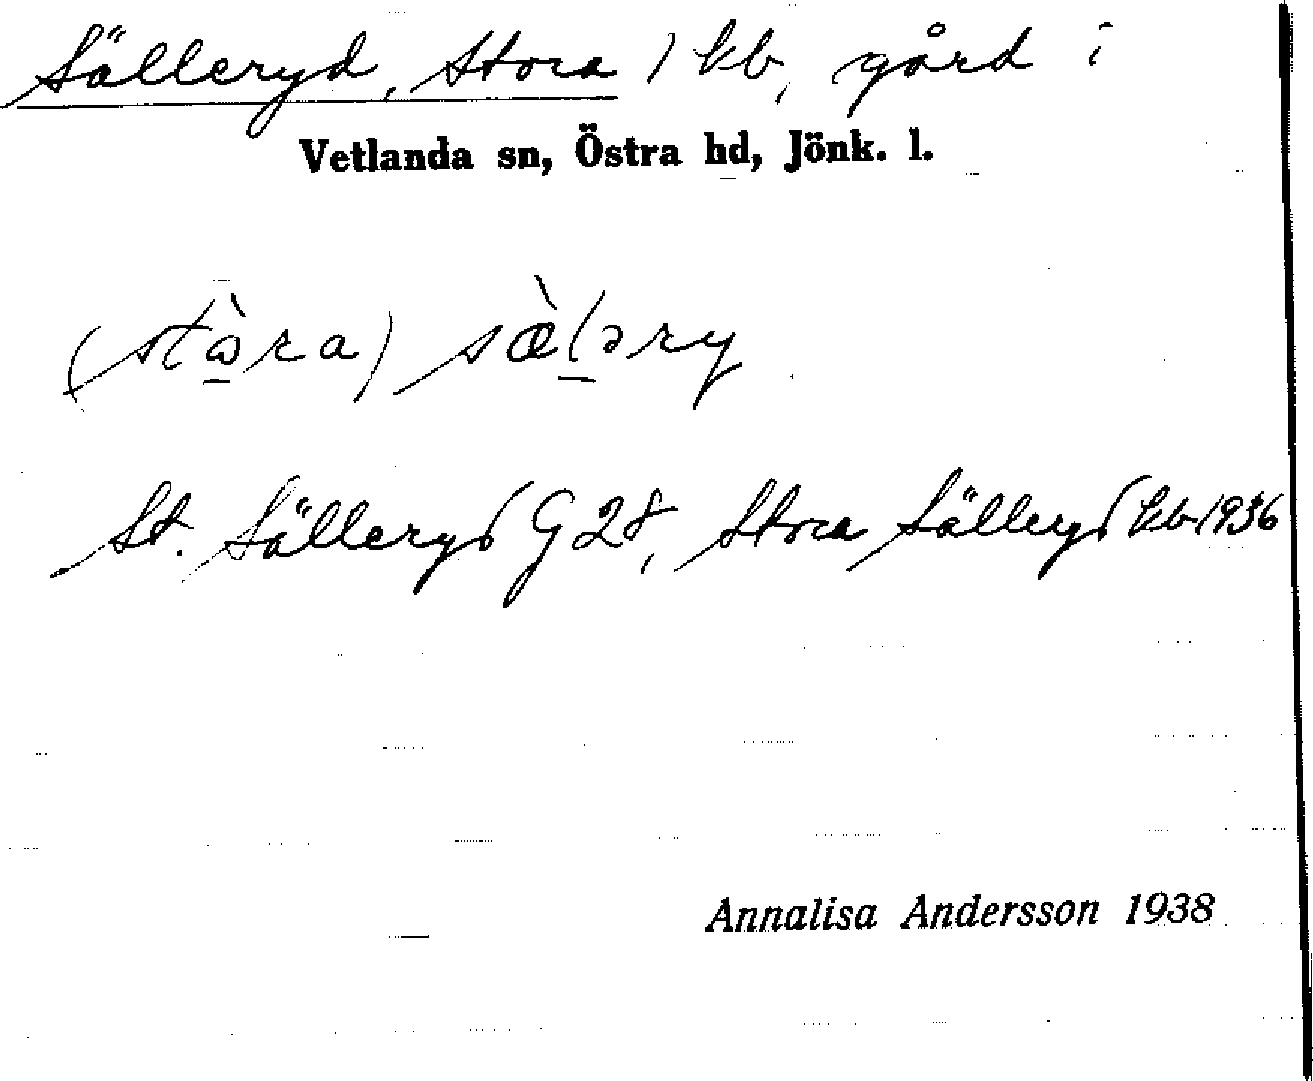 Sälleryd, Stora / kb, gård i
Vetlanda sn, Östra hd, Jönk. l.
(stòra) sæ̀ləry
St. Sälleryd G 28, Stora Sälleryd kb 1936
Annalisa Andersson 1938